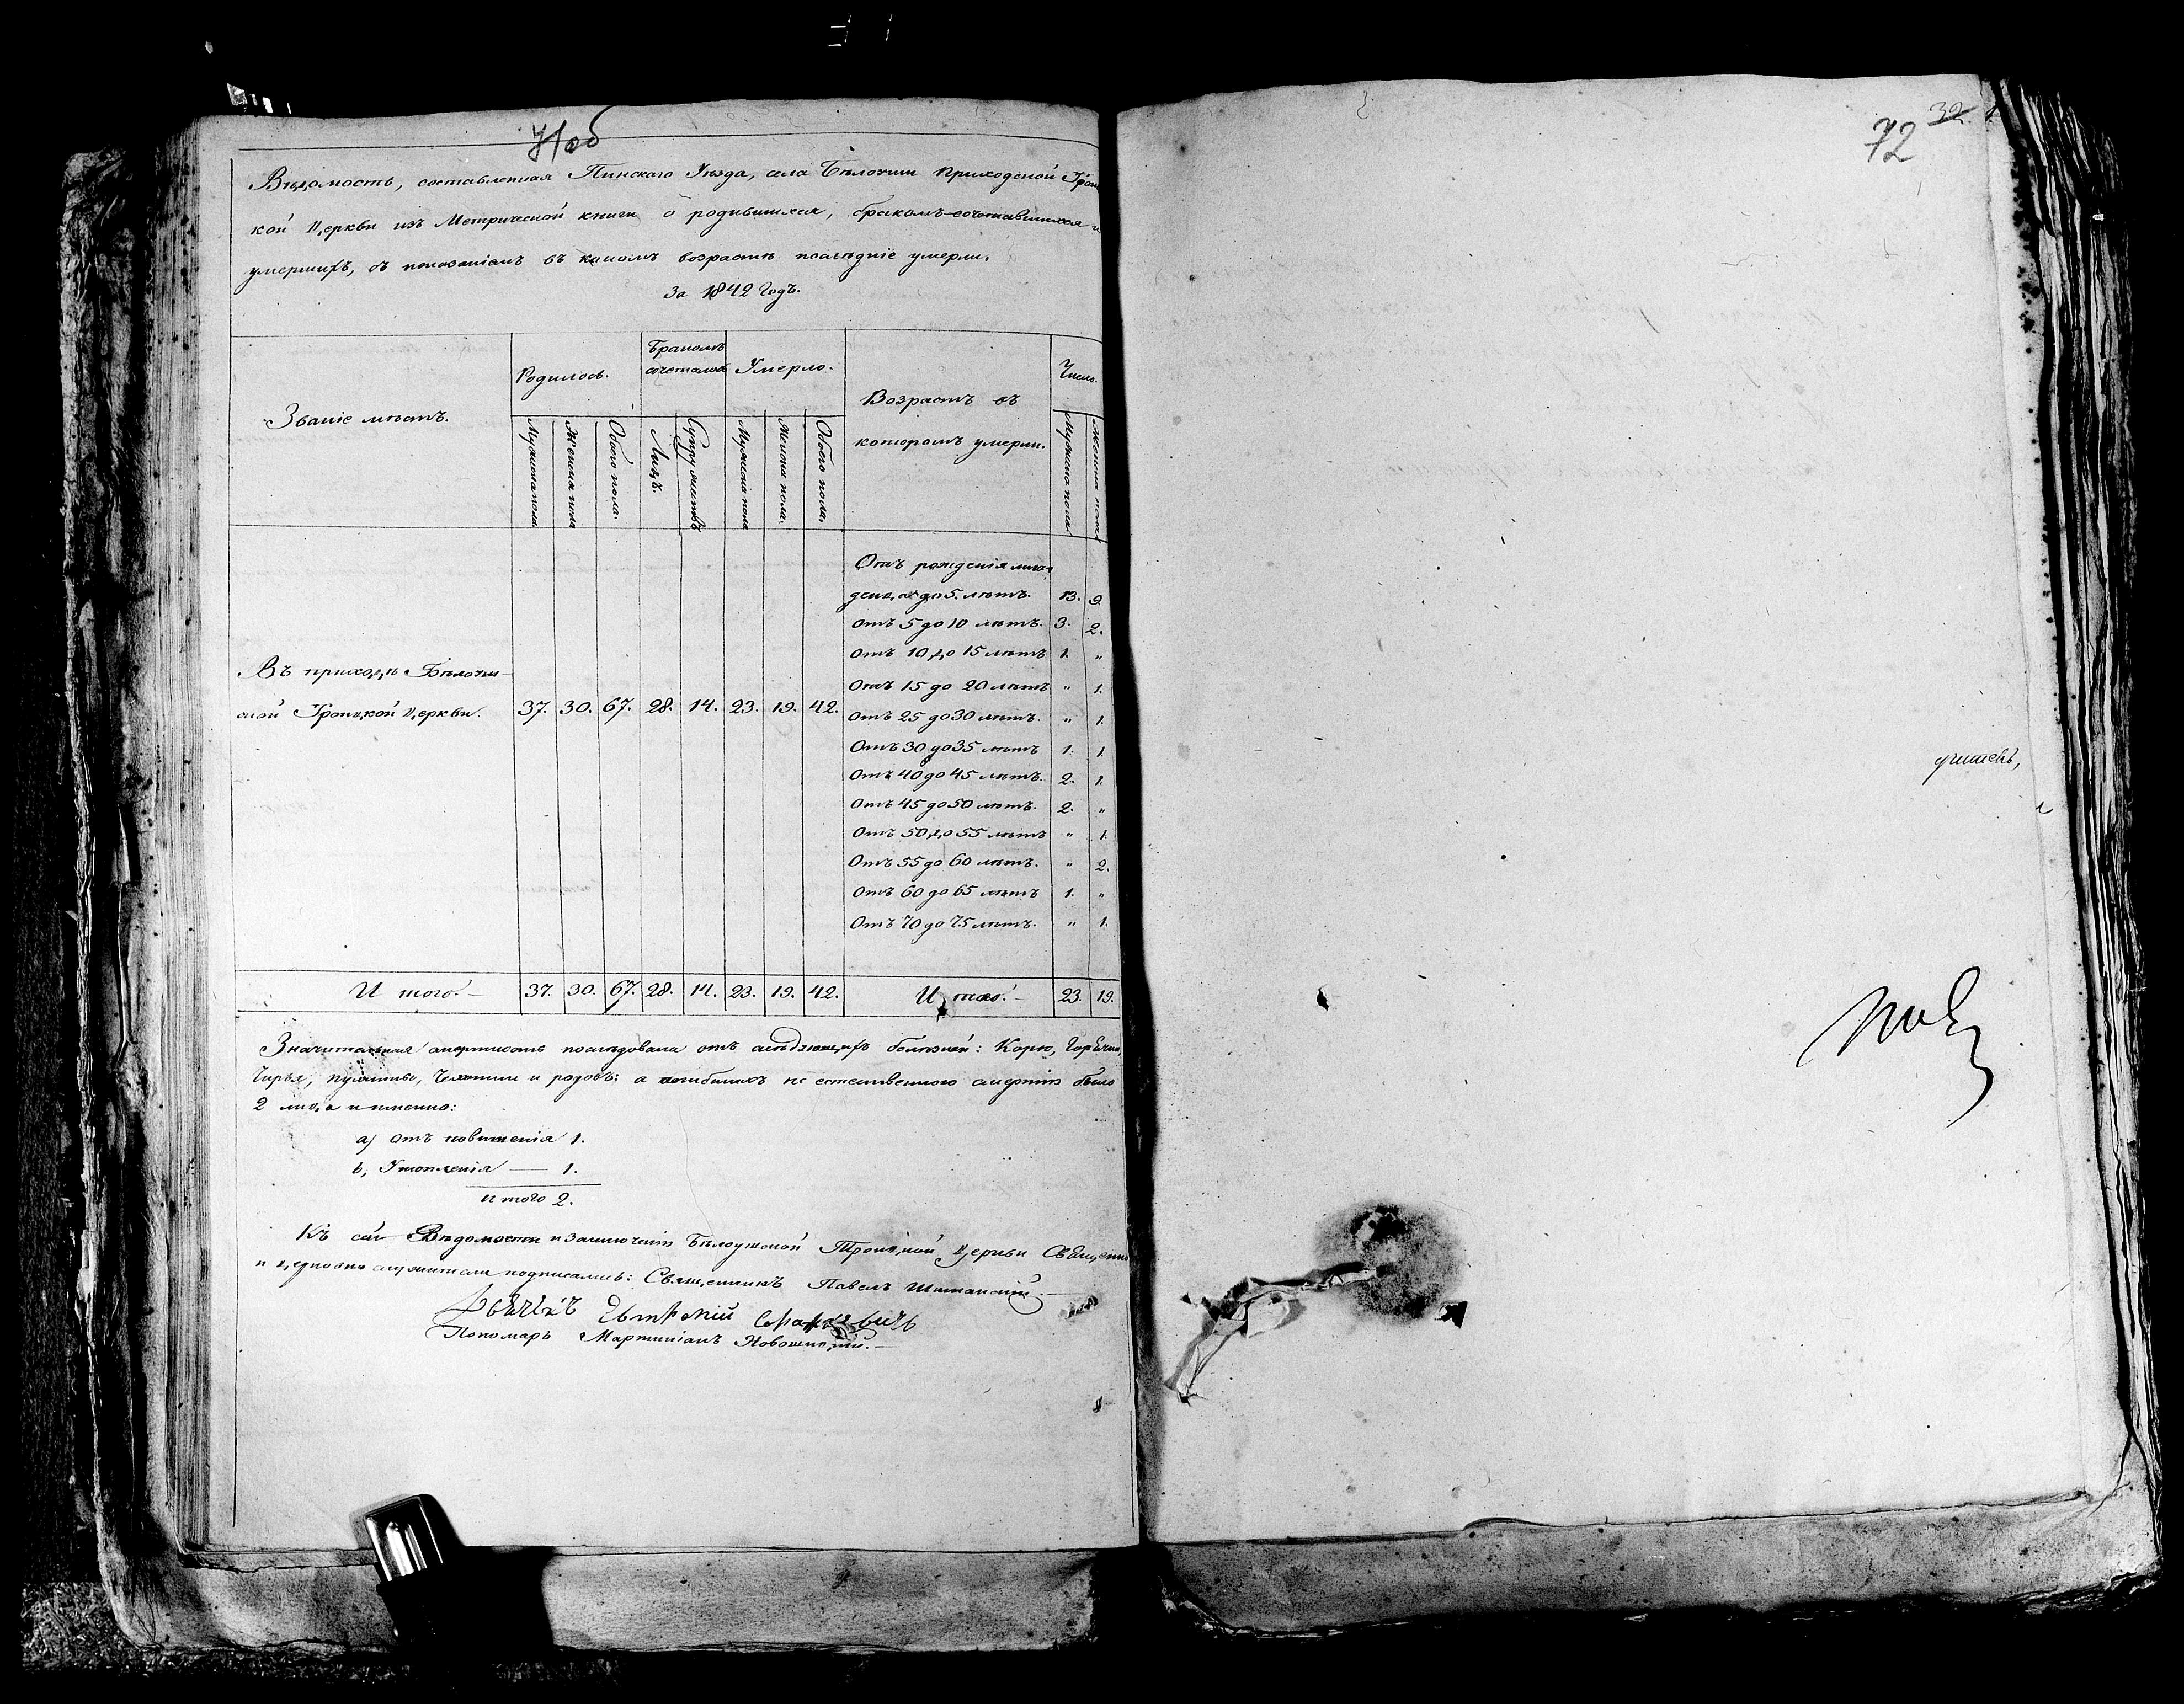 71об
Вѣдомость, составленная Пинскаго Уѣзда, села Бѣлоуши Приходской Трои
кой Церкви изъ Метрической книги о родившихся, бракомъ сочетавшихся и
умершихъ, съ показаніемъ въ какомъ возрастѣ послѣдніе умерли.
За 1842 Годъ.
Званіе мѣстъ.
Родилось.
Бракомъ
сочеталось
Умерло.
Возрастъ въ
которомъ умерли.
Число.
Мужеска пола
Женска пола
Обоего пола.
Лицъ.
Супружествъ
Мужеска пола
Женска пола.
Обоего пола.
Мужеска пола
Женска пола
Въ приходѣ Бѣлоуш-
ской Троицкой Церкви. 37. 30. 67. 28. 14. 23. 19. 42.
Отъ рожденія мла-
денца до 5. лѣтъ. 13. 9.
Отъ 5 до 10 лѣтъ. 3. 2.
Отъ 10 до 15 лѣтъ 1. "
Отъ 15 до 20 лѣтъ " 1.
Отъ 25 до 30 лѣтъ. " 1.
Отъ 30 до 35 лѣтъ 1. 1.
Отъ 40 до 45 лѣтъ. 2. 1.
Отъ 45 до 50 лѣтъ. 2. "
Отъ 50 до 55 лѣтъ " 1.
Отъ 55 до 60 лѣтъ. " 2.
Отъ 60 до 65 лѣтъ 1. "
Отъ 70 до 75 лѣтъ. " 1.
И того. — 37. 30. 67. 28. 14. 23. 19. 42. И того. — 23. 19.
Значительная смертность послѣдовала отъ слѣдующихъ болѣзней: Корю, Горячки,
и родовъ: а погибшихъ не естественною смертію было
2 лица именно:
а) Отъ повишенія 1.
b, Утопленія — 1.
и того 2.
Къ сей Вѣдомости и заключенію Бѣлоушской Троицкой Церкви Священно
и церковно служители подписались: Священникъ Павелъ Шиманскій. —
Дьячекъ
Пономарь Мартиніанъ
72
32